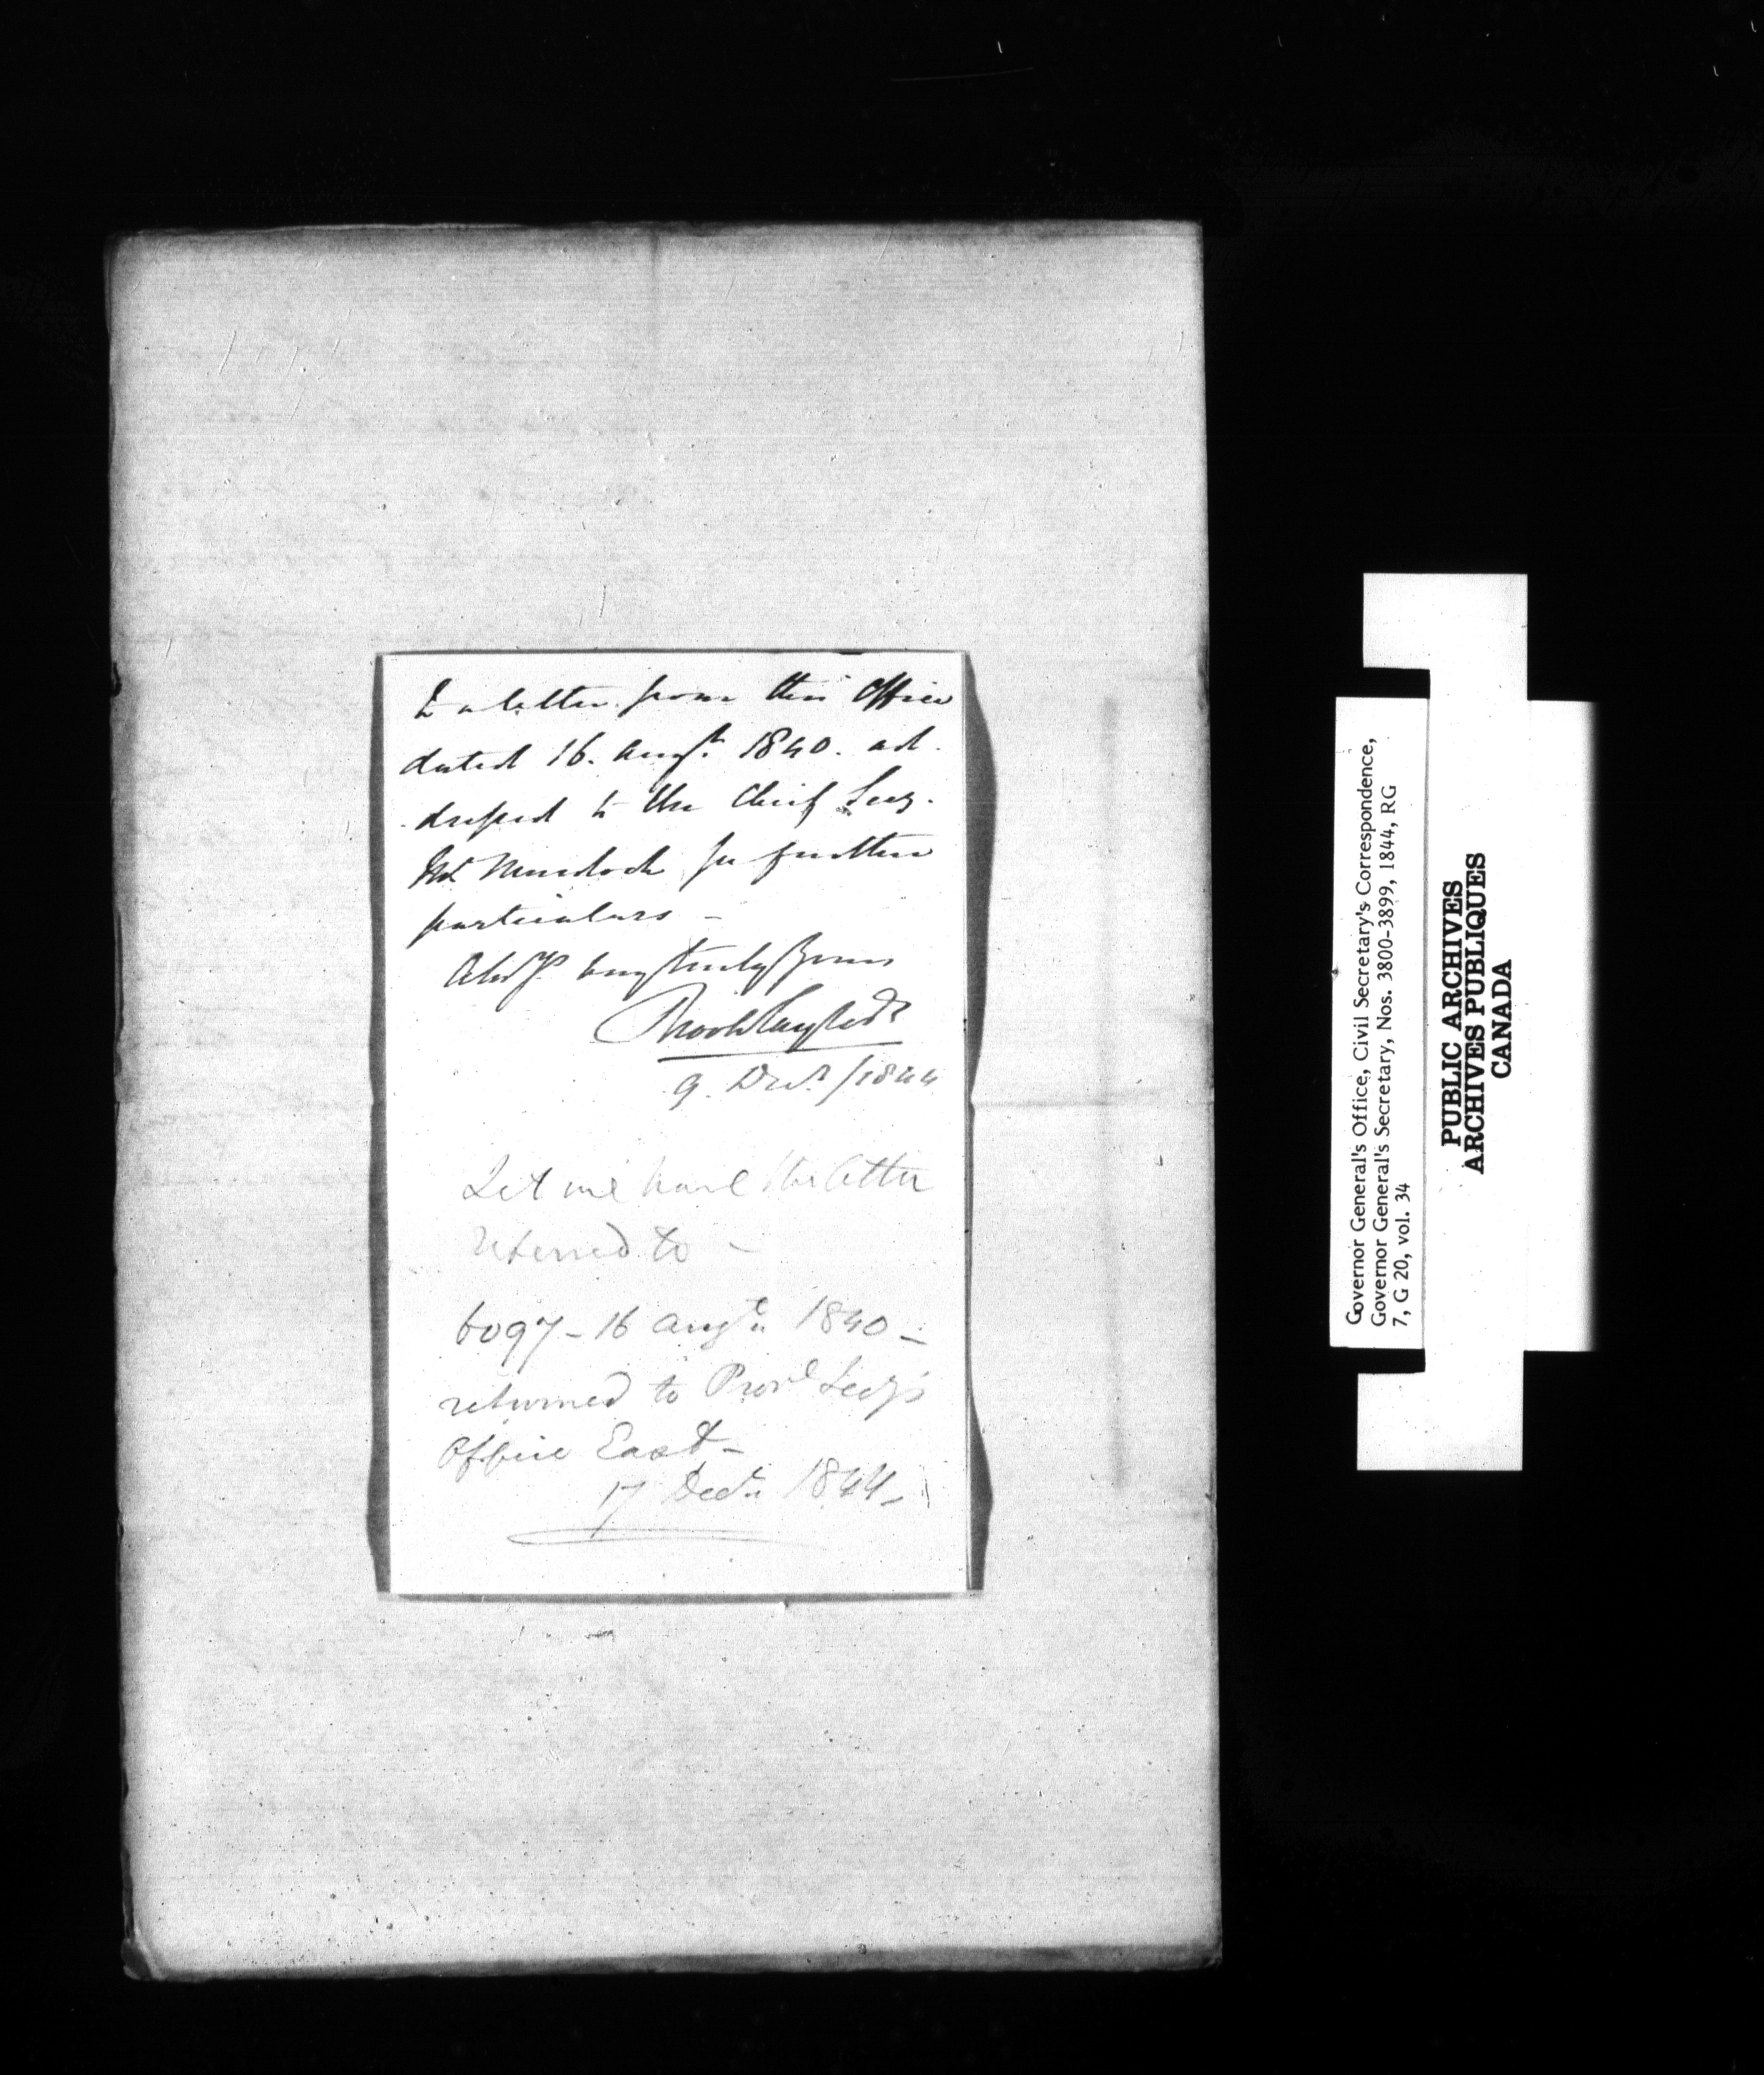 to a letter from this Office
dated 16. Augt. 1840. ad-
-dressed to the Chief Secy.
Mr Murdoch for further
particulars –
very truly Yours
9. Decr. /1844
Let me have the letter
referred to –
6097 – 16 Augt. 1840 –
returned to Provl Secy's
Office East –
17 Decr. 1844 –
Governor General's Office, Civil Secretary's Correspondence,
Governor General's Secretary, Nos. 3800-3899, 1844, RG
7, G 20, vol. 34
PUBLIC ARCHIVES
ARCHIVES PUBLIQUES
CANADA